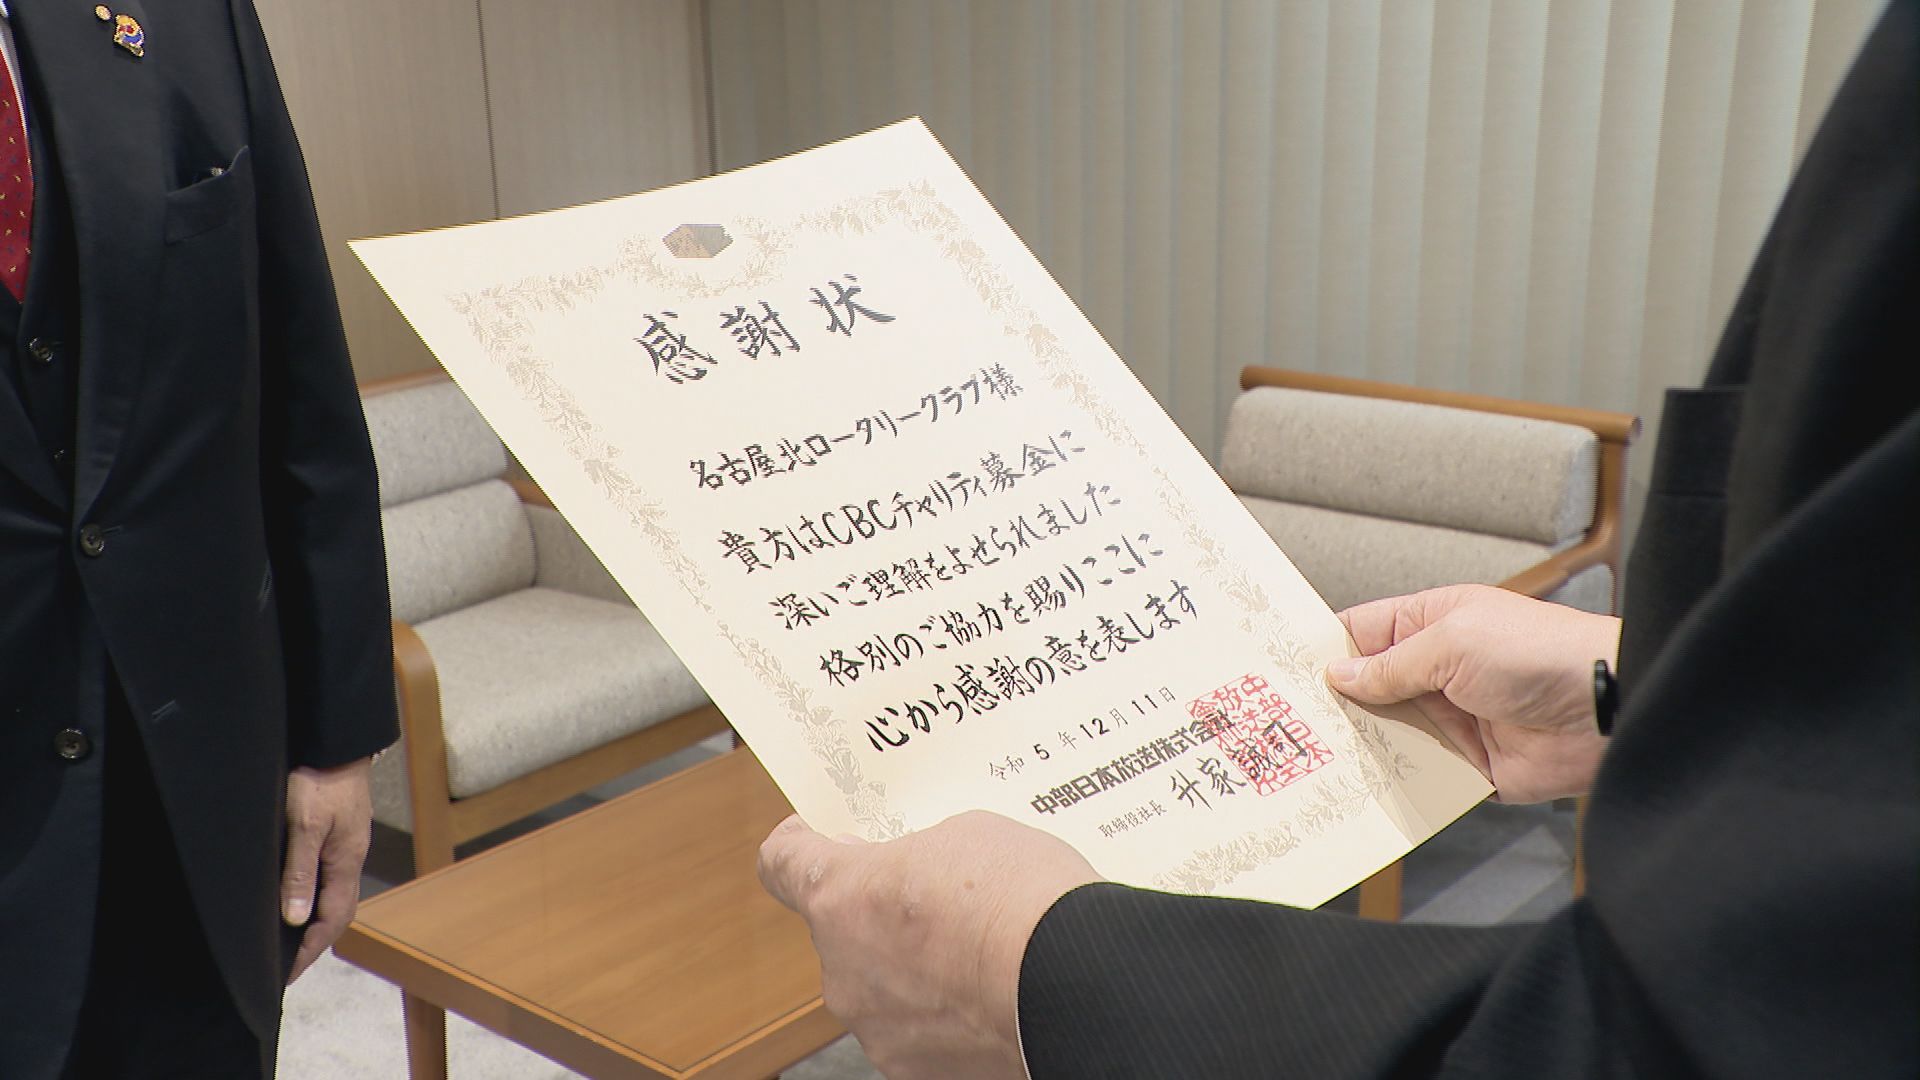 感謝状
名古屋北ロータリークラブ様
貴方はCBCチャリティ募金に
深いご理解をよせられました
格別のご協力を賜りここに
心から感謝の意を表します
令和5年12月11日
中部日本放送株式会社
取締役社長 升家誠司